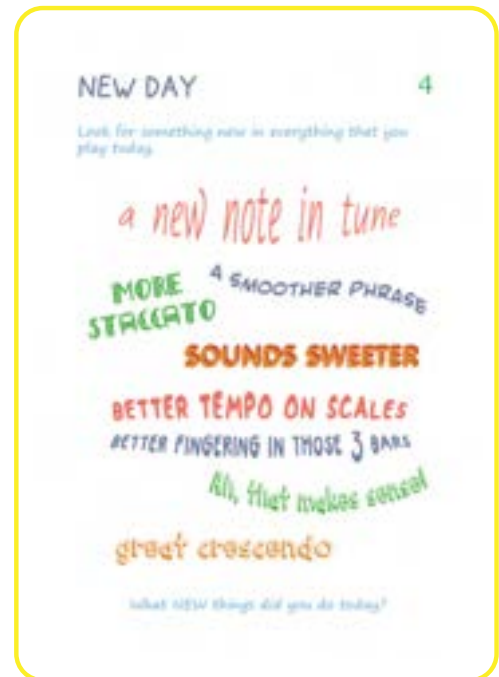 NEW DAY 4
Look for something new in everything that you
play today.
a new note in tune
MORE
STACCATO
A SMOOTHER PHRASE
SOUNDS SWEETER
BETTER TEMPO ON SCALES
BETTER FINGERING IN THOSE 3 BARS
Ah, that makes sense!
great crescendo
What NEW things did you do today?